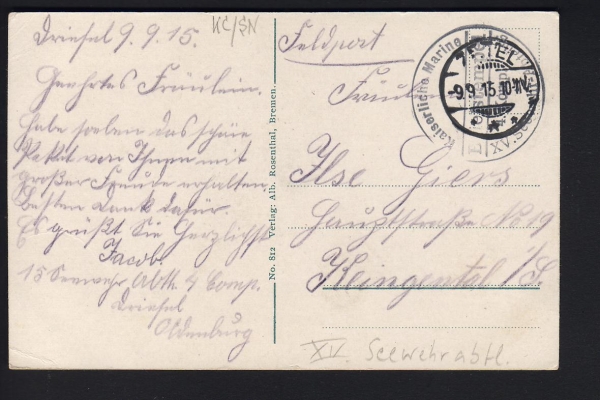 Driefel 9.9.15.
KC/SN
Geehrtes Fräulein.
Habe soeben das schöne
Paket von Ihnen mit
großer Freude erhalten.
Besten Dank dafür.
Es grüßt Sie Herzlichst
Jacob.
15 Seewehr Abth. 4 Comp.
Driefel
Oldenburg
No. 812 Verlag: Alb. Rosenthal, Bremen.
Feldpost
Kaiserliche Marine
ZETEL
-9.9.15.10-11V.
XV. See
Fräulein
Ilse Giers
Hauptstraße No 19
Klingental i/S.
XV. Seewehrabtl.